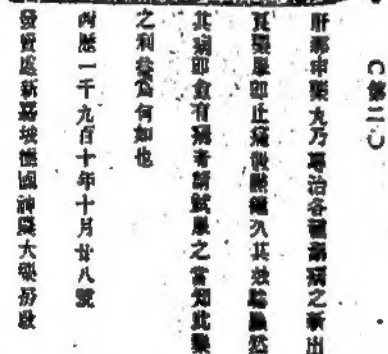 C第二C
肝那申藥丸乃專治各種癬病之新出
其藥服即止癢微 繼久其效 然
其病即愈有病者請試服之當知此藥
之利益為何如也
西歷一千九百十年十月廿八號
發賣處新嘉坡德國神農大藥房啟